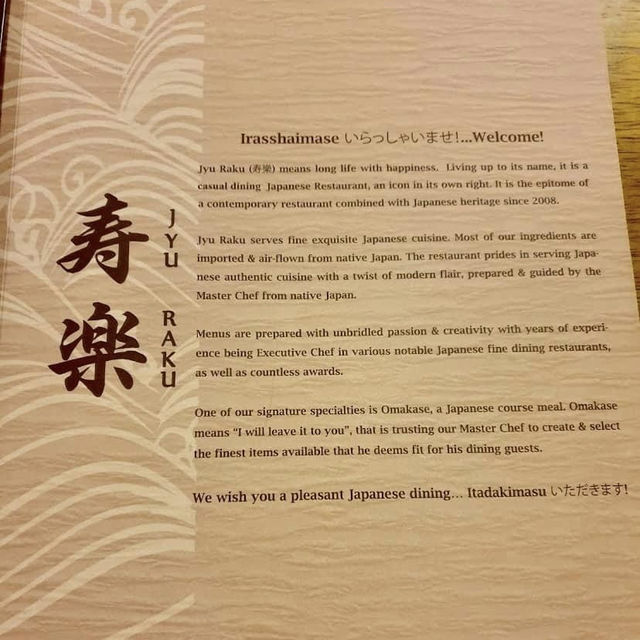 寿楽
JYU RAKU
Irasshaimase いらっしゃいませ!...Welcome!
Jyu Raku (寿樂) means long life with happiness. Living up to its name, it is a
casual dining Japanese Restaurant, an icon in its own right. It is the epitome of
a contemporary restaurant combined with Japanese heritage since 2008.
Jyu Raku serves fine exquisite Japanese cuisine. Most of our ingredients are
imported & air-flown from native Japan. The restaurant prides in serving Japa-
nese authentic cuisine with a twist of modern flair, prepared & guided by the
Master Chef from native Japan.
Menus are prepared with unbridled passion & creativity with years of experi-
ence being Executive Chef in various notable Japanese fine dining restaurants,
as well as countless awards.
One of our signature specialties is Omakase, a Japanese course meal. Omakase
means “I will leave it to you”, that is trusting our Master Chef to create & select
the finest items available that he deems fit for his dining guests.
We wish you a pleasant Japanese dining… Itadakimasu いただきます!